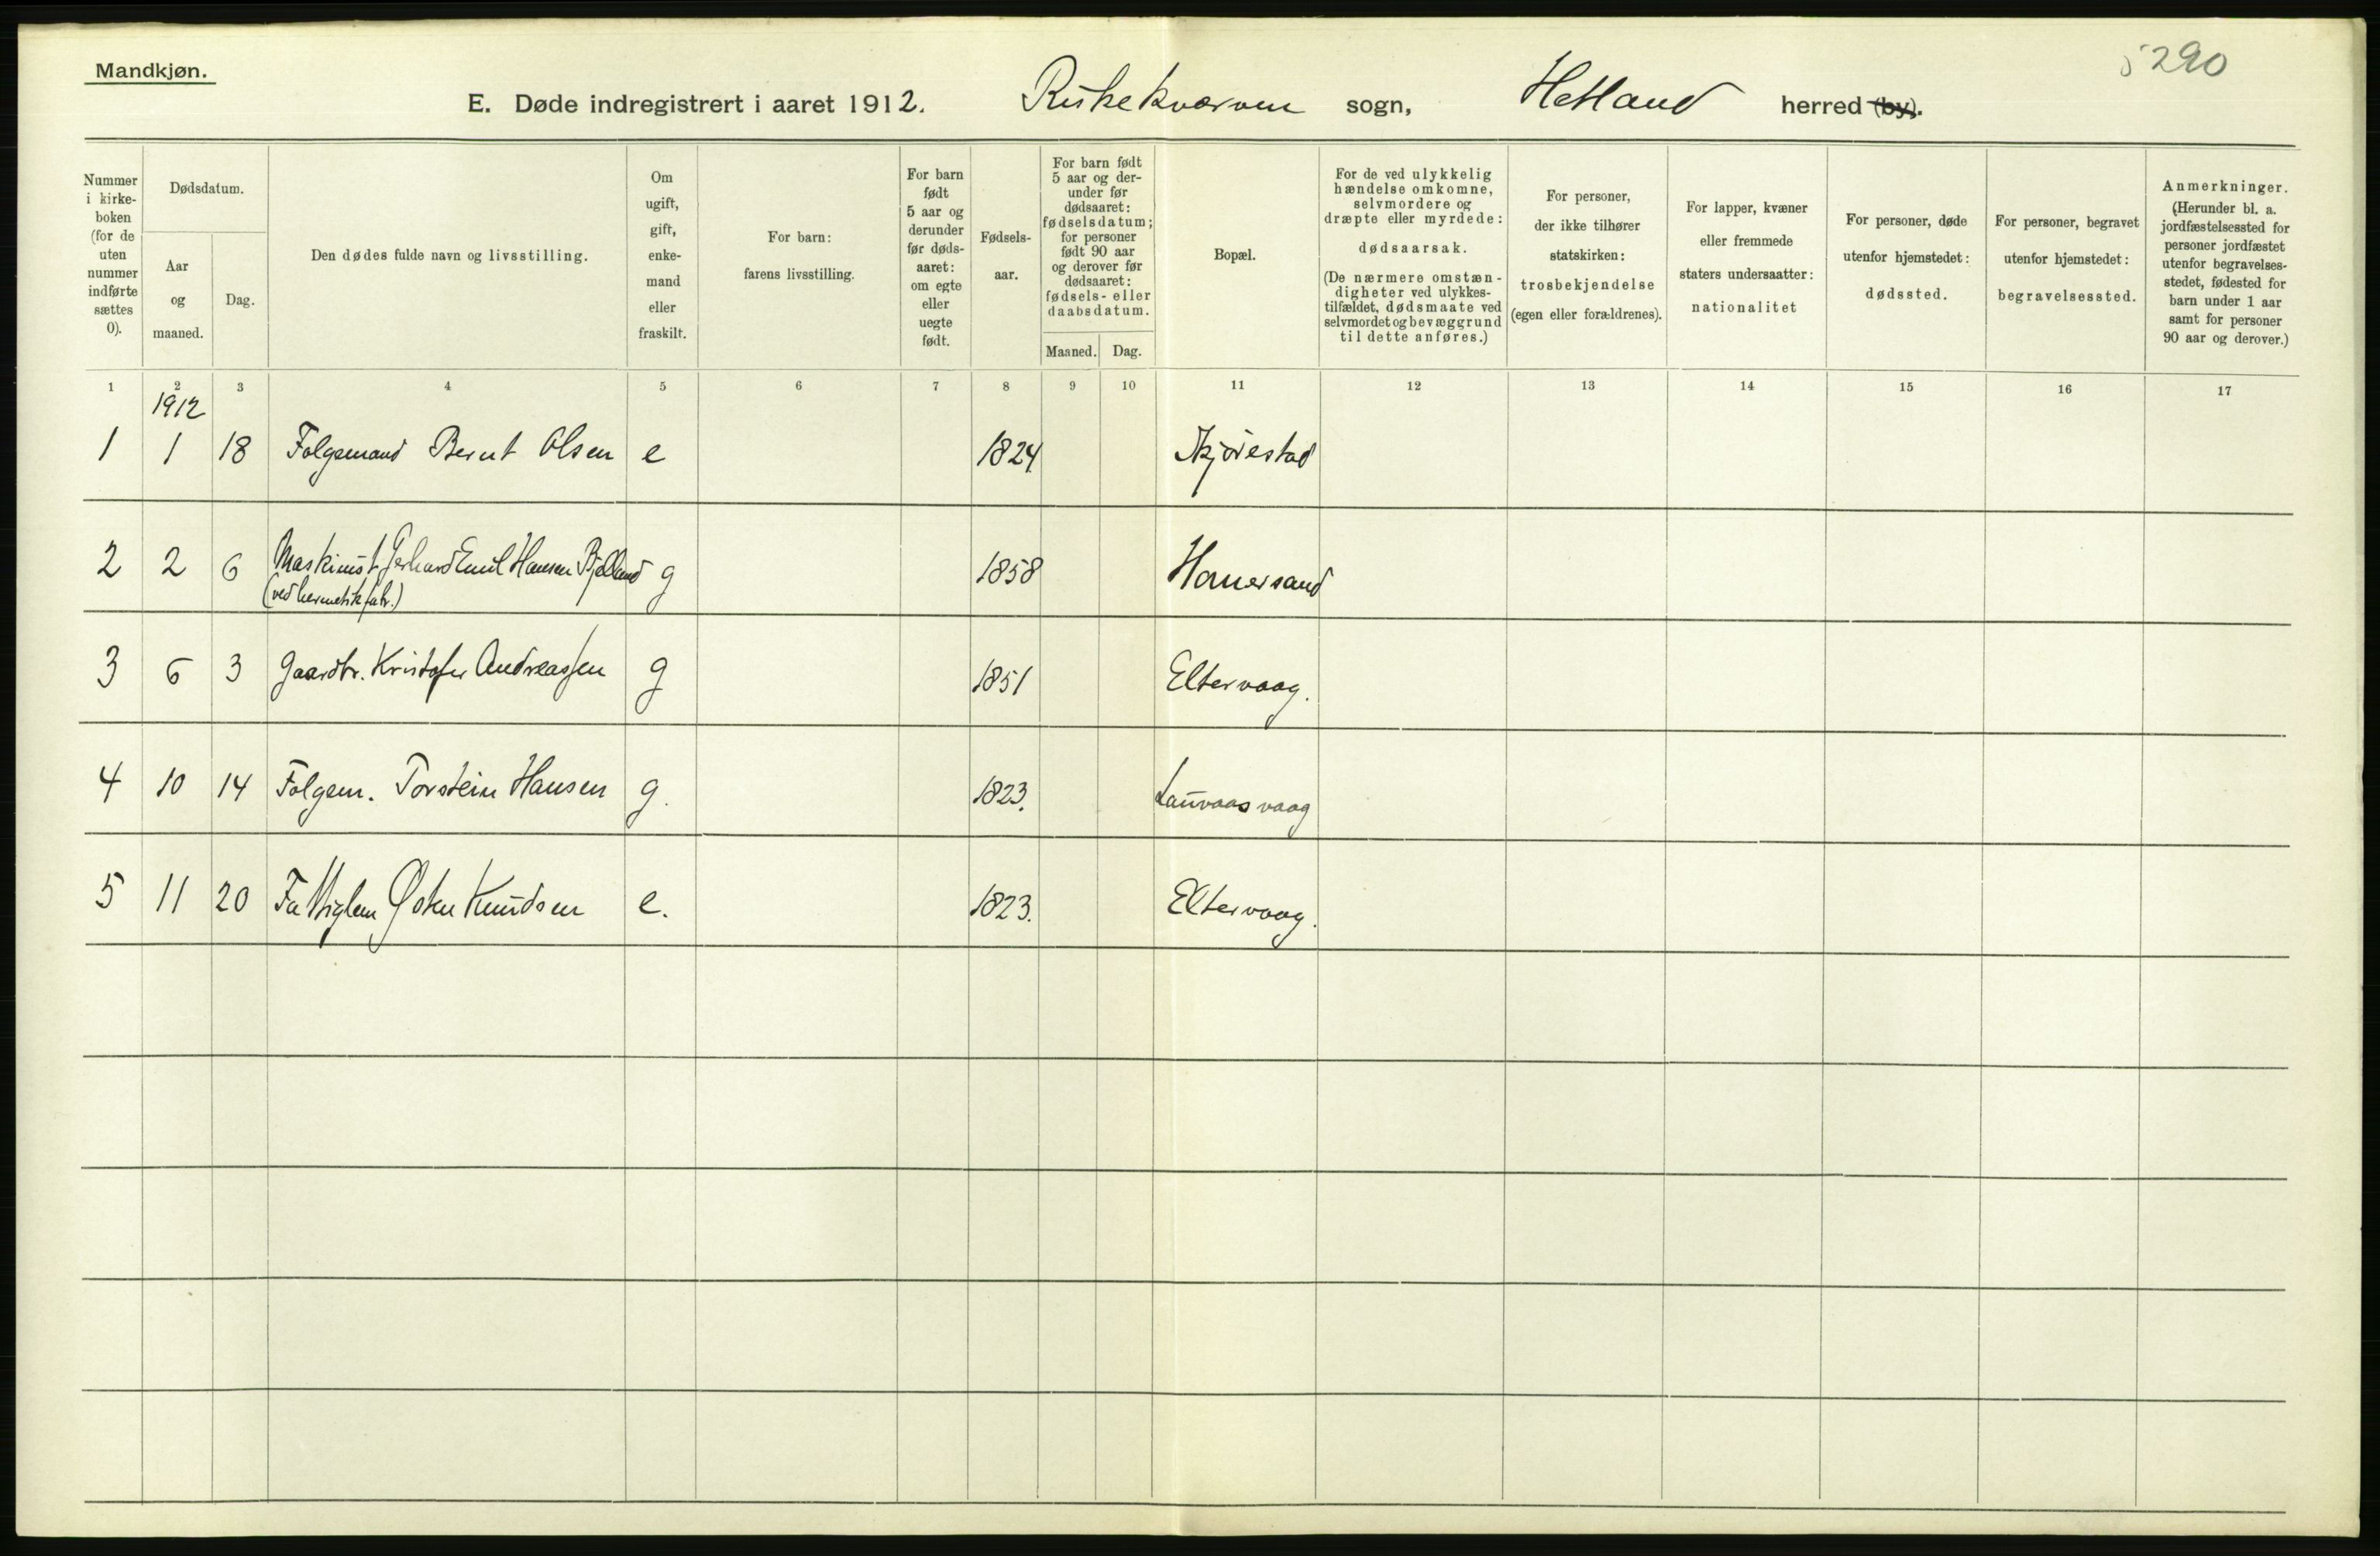 5290
Mandkjøn.
E. Døde indregistrert i aaret 1912. Riskekværven sogn, Hetland herred (by).
Nummer i kirke- boken (for de uten nummer indførte sættes 0).
Dødsdatum.
Aar og maaned.
Dag.
Den dødes fulde navn og livsstilling.
Om ugift, gift, enke- mand eller fraskilt.
For barn: farens livsstilling.
For barn født 5 aar og derunder før døds- aaret: om egte eller uegte født.
Fødsels- aar.
For barn født 5 aar og der- under før dødsaaret: fødselsdatum; for personer født 90 aar og derover før dødsaaret: fødsels- eller daabsdatum.
Maaned. Dag.
Bopæl.
For de ved ulykkelig hændelse omkomne, selvmordere og dræpte eller myrdede: dødsaarsak. (De nærmere omstæn- digheter ved ulykkes- tilfældet, dødsmaate ved selvmordet og bevæggrund til dette anføres.)
For personer, der ikke tilhører statskirken: trosbekjendelse (egen eller forældrenes).
For lapper, kvæner eller fremmede staters undersaatter: nationalitet
For personer, døde utenfor hjemstedet: dødssted.
For personer, begravet utenfor hjemstedet: begravelsessted.
Anmerkninger. (Herunder bl. a. jordfæstelsessted for personer jordfæstet utenfor begravelses- stedet, fødested for barn under 1 aar samt for personer 90 aar og derover.)
1 2 3 4 5 6 7 8 9 10 11 12 13 14 15 16 17
1912
1 1 18 Folgemand Bernt Olsen e 1824 Skjørestad
2 2 6 Maskinist Gerhard Emil Hansen Bjelland g 1858 Homersand
(ved hermetikfabr.)
3 6 3 Gaardbr. Kristofer Andreassen g 1851 Eltervaag.
4 10 14 Folgem. Torstein Hansen g. 1823. Lauvaasvaag
5 11 20 Fattiglem Østen Knudsen e. 1823. Eltervaag.